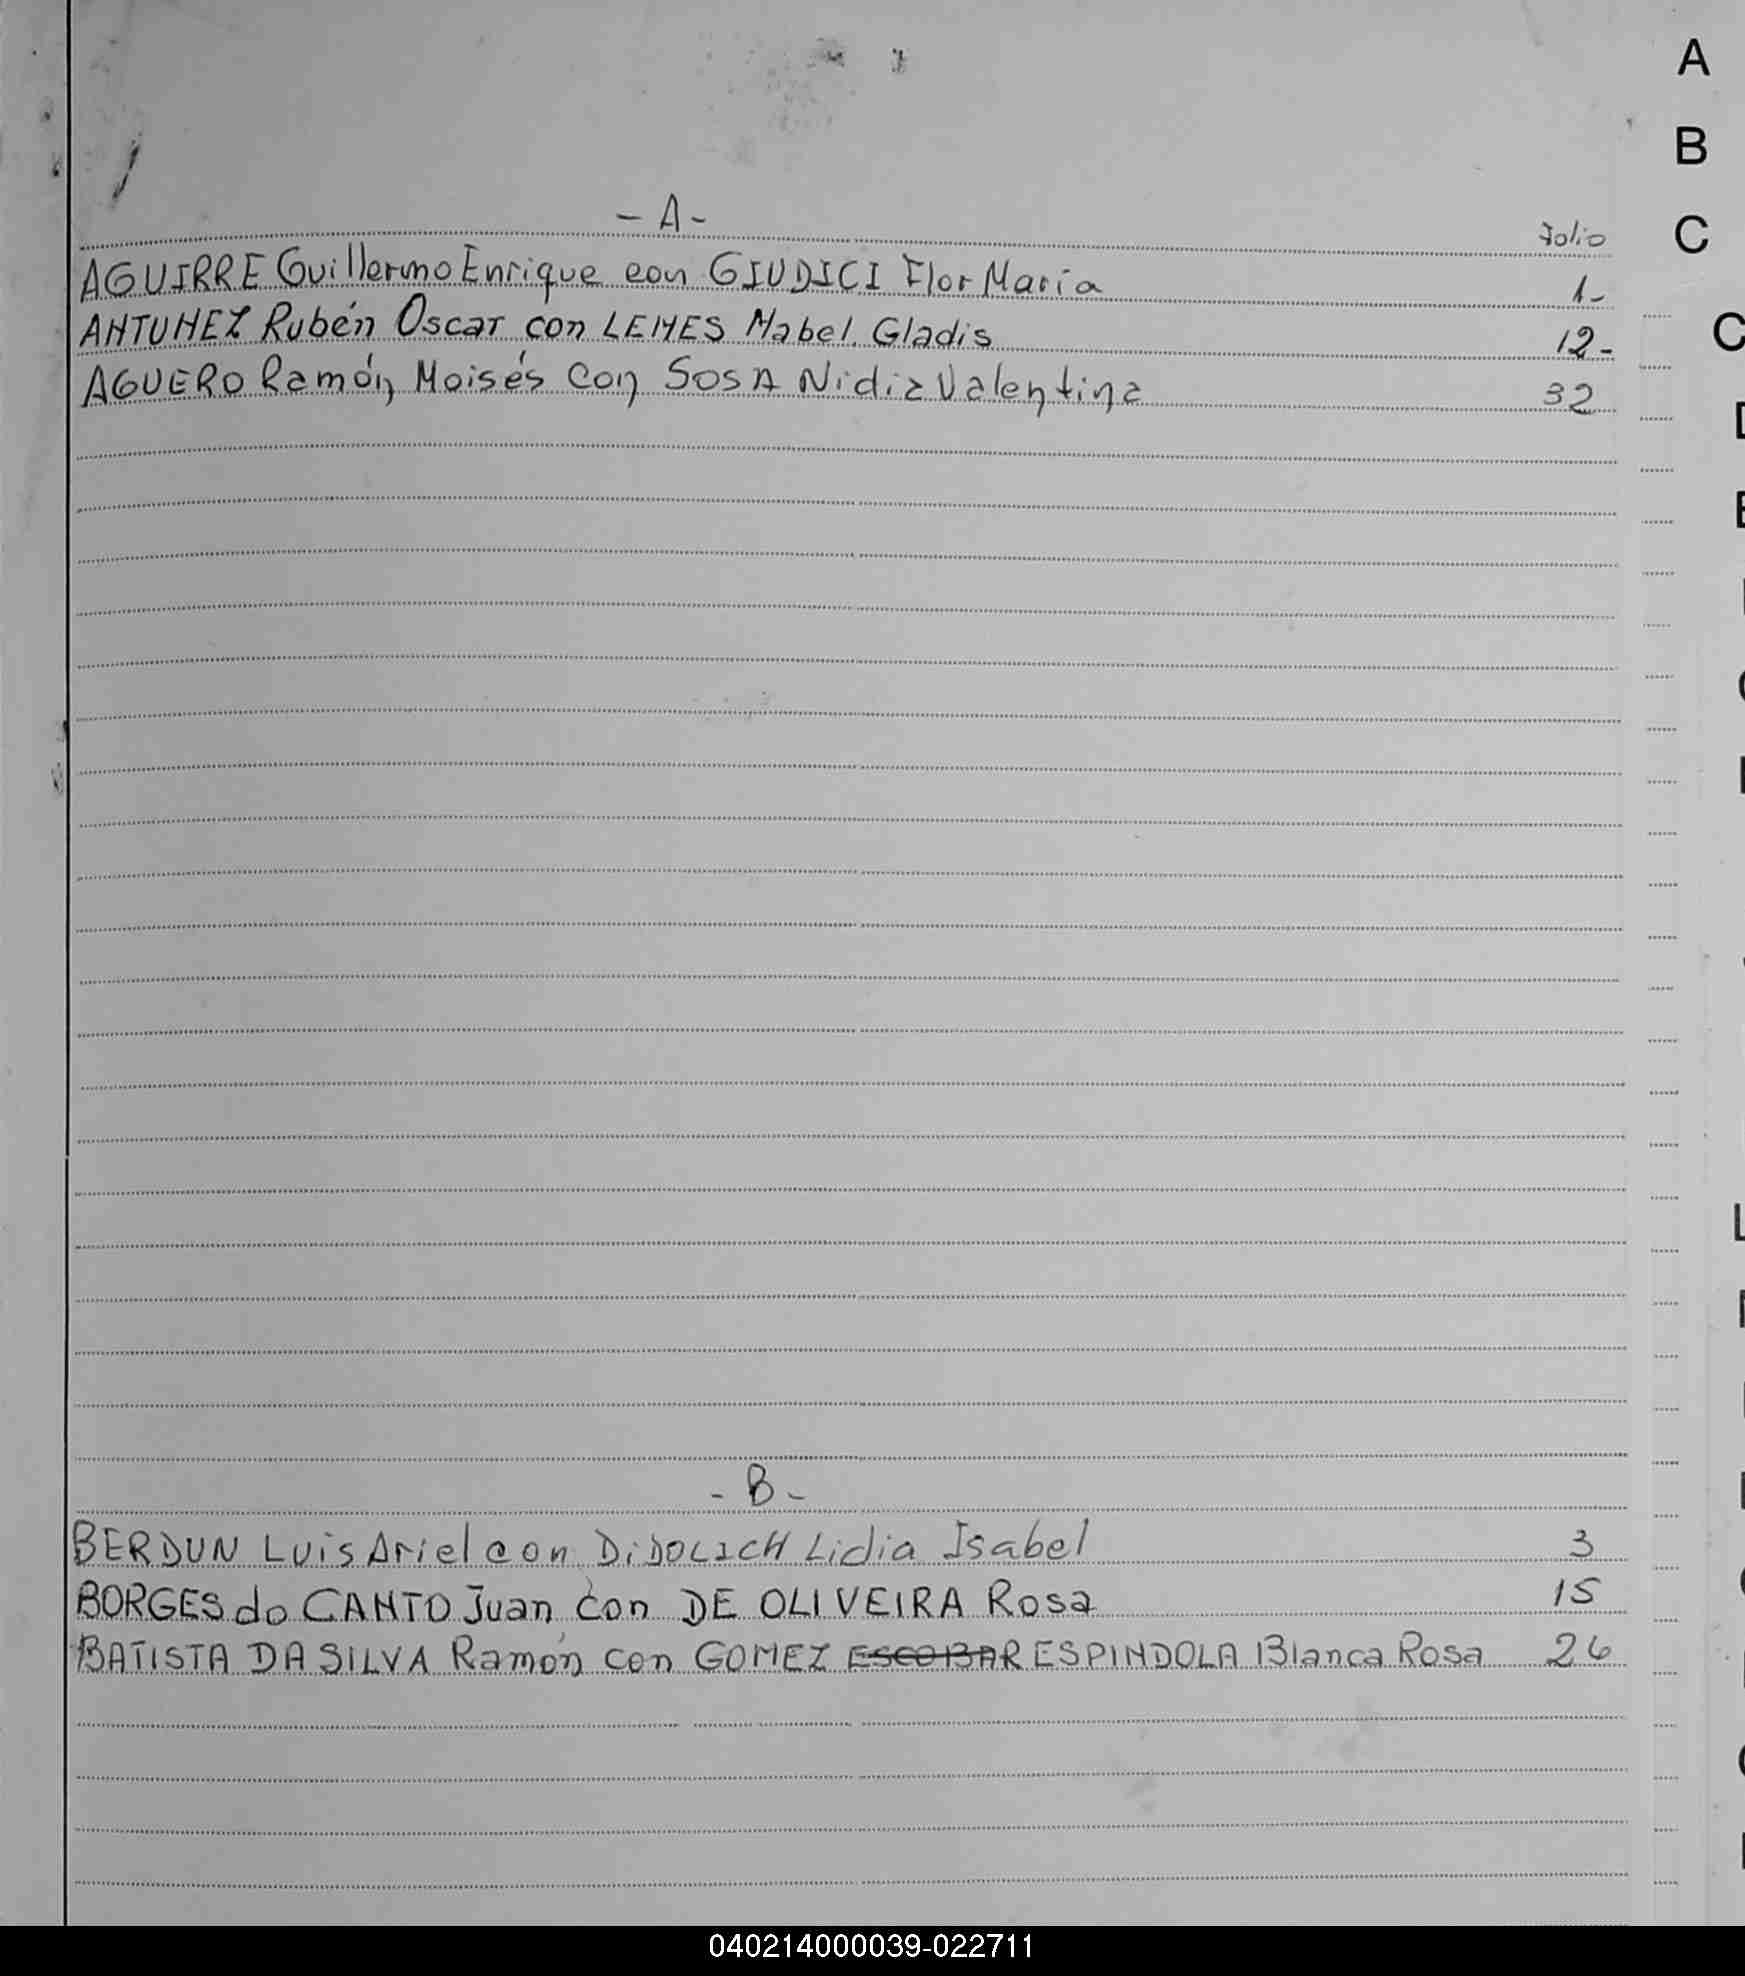 A
B
- A -
Folio
C
AGUIRRE Guillermo Enrique con GIUDICI Flor María 1-
ANTUNEZ Rubén Oscar con LEMES Mabel Gladis 12-
C
AGUERO Ramón Moisés con SOSA Nidia Valentina 32
- B -
BERDUN Luis Ariel con DiDOLICH Lidia Isabel 3
BORGES do CANTO Juan con DE OLIVEIRA Rosa 15
BATISTA DA SILVA Ramón con GOMEZ ESCOBAR ESPINDOLA Blanca Rosa 26
040214000039-022711